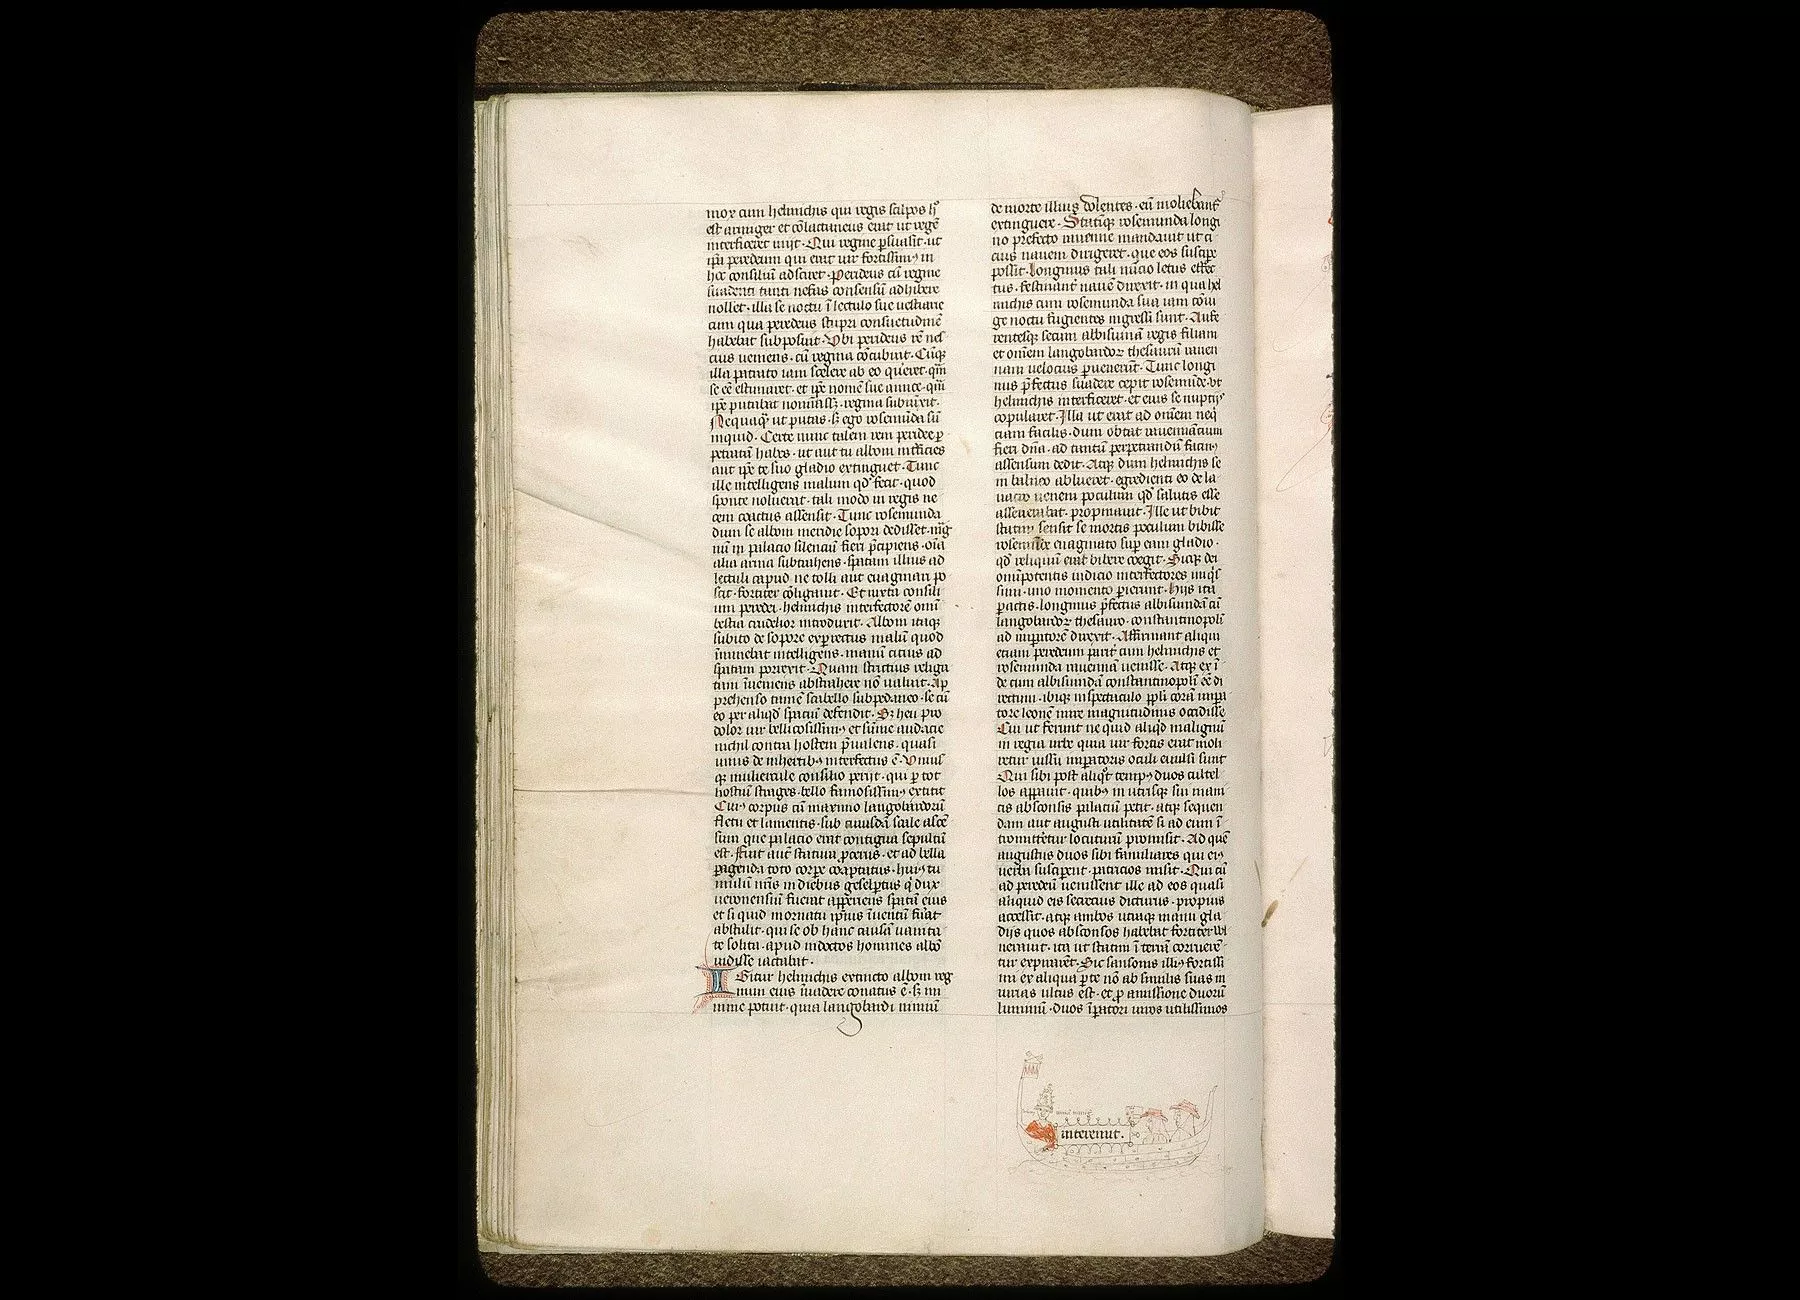 mox cum helmichis qui regis scilpos h̅
est armiger et co̅lactaneus erat ut rege̅
interficeret inijt. Qui regine p̱suasit. ut
ip̅i peredeum qui erat uir fortissimꝰ in
hoc consilium adsciret. Perideus cu̅ regine
suadenti tanti nefas consensu̅ adhibere
nollet. illa se noctu i̅ lectulo sue uestiarie
cum qua peredeus stupri consuetudine̅
habebat supposuit. Vbi perideus re̅ nes
cius ueniens. cu̅ regina co̅cubuit. Cu̅qꝫ
illa patrato iam scelere ab eo quereret. qua̅
se e̅e estimaret. et ip̅e nome̅ sue amice. qua̅
ip̅e putabat nominassꝫ. regina subiu̅xit.
Nequaq̅ ut putas. sꝫ ego rosemu̅da su̅
inquid. Certe nunc talem rem peridee ꝑ
petrata̅ habes. ut aut tu alboin int̅ficies
aut ip̅e te suo gladio extinguet. Tunc
ille intelligens malum qd̅ fecit. quod
sponte noluerat. tali modo in regis ne
cem coactus assensit. Tunc rosemunda
dum se alboin meridie sopori dedisset. mag̅
nu̅ in palacio silenciu̅ fieri p̅cipiens. o̅ia
alia arma subtrahens. spatam illius ad
lectuli capud ne tolli aut euaginari po
sset. fortiter co̅ligauit. Et iuxta consili
um peredei. helmichis interfectore̅ omni
bestia crudelior introduxit. Alboin itaqꝫ
subito de sopore exp̱rectus malu̅ quod
i̅minebat intelligens. manu̅ citius ad
spatam porrexit. Quam strictius religa
tam i̅ueniens abstrahere no̅ ualuit. Ap
prehenso tame̅ scabello subpedaneo. se cu̅
eo per aliqd̅ spatiu̅ defendit. Sꝫ heu pro
dolor uir bellicosissimꝰ et su̅me audacie
nichil contra hostem p̅ualens. quasi
unus de inhertibꝰ interfectus e̅. Vnius
qꝫ muliercule consilio perijt. qui ꝑ tot
hostiu̅ strages. bello famosissimꝰ extitit
Cuiꝰ corpus cu̅ maximo langobardoru̅
fletu et lamentis. sub cuiusda̅ scale asce̅
sum que palacio erat contigua sepultu̅
est. Fuit aut̅ statura ꝓcerus. et ad bella
p̱agenda toto corꝑe coaptatus. huiꝰ tu
mulu̅ n̅ris in diebus giselp̱tus q̇ dux
ueronensiu̅ fuerat apperiens spata̅ eius
et si quid in ornatu ip̅ius i̅uentu̅ fu̅at
abstulit. qui se ob hanc causa̅ uanita
te solita. apud indoctos homines albo̅
uidisse iactabat.
IGitur helmichis extincto alboin reg
num eius i̅uadere conatus e̅. sꝫ mi
nime potuit. quia langobardi nimiu̅
de morte illius dolentes. eu̅ moliebant̅
extinguere. Statimqꝫ rosemunda longi
no prefecto rauenne mandauit ut ci
cius nauem dirigeret. que eos suscip̱e
possit. Longinus tali nu̅cio letus effec
tus. festinant̅ naue̅ direxit. in qua hel
michis cum rosemunda sua iam co̅iu
ge noctu fugientes ingressi sunt. Aufe
rentesqꝫ secum albisuinda̅ regis filiam
et om̅em langobardoꝝ thesauru̅ rauen
nam uelocius ꝑuenerunt. Tunc longi
nus p̅fectus suadere cepit rosemu̅de. ut
helmichis interficeret. et eius se nuptijs
copularet. Illa ut erat ad om̅em neq̇
ciam facilis. dum obtat rauennatium
fieri dn̅a. ad tantu̅ perpetrandu̅ facinꝰ
assensum dedit. Atqꝫ dum helmichis se
in balneo ablueret. egredienti eo de la
uacro ueneni poculum qd̅ salutis esse
asseuerabat. propinauit. Ille ut bibit
statim sensit se mortis poculum bibisse
rosemu̅de euaginato sup̱ eam gladio.
qd̅ reliquum erat bibere coegit. Sicqꝫ dei
omnipotentis iudicio interfectores iniq̇s
simi. uno momento ꝑierunt. Hijs ita
ꝑactis. longinus p̅fectus albisuinda̅ cu̅
langobardoꝝ thesauro. constantinopoli̅
ad imꝑatore̅ direxit. Affirmant aliqui
etiam peredeum parit̅ cum helmichis et
rosemunda rauenna̅ uenisse. Atqꝫ ex i̅
de cum albisuinda̅ constantinopoli̅ e̅e di
rectum. ibiqꝫ in spectaculo pp̅li cora̅ imꝑa
tore leone̅ mire magnitudinis occidisse
Cui ut ferunt ne quid aliqd̅ malignu̅
in regia urbe quia uir fortis erat moli
retur iussu imꝑatoris oculi euulsi sunt
Qui sibi post aliq̊t tempꝰ duos cultel
los aptauit. quibꝰ in utrisqꝫ sui mani
cis absconsis palatiu̅ petit. atqꝫ sequen
dam aut augusti utilitate̅ si ad eum i̅
tromitteretur locuturu̅ promisit. Ad que̅
augustus duos sibi familiares qui eiꝰ
uerba susciperent. patricios misit. Qui cu̅
ad peredeu̅ uenissent ille ad eos quasi
aliquid eis secrecius dicturus. propius
accessit. atqꝫ ambos utraqꝫ manu gla
dijs quos absconsos habebat fortiter uul
nerauit. ita ut statim i̅ terra̅ corruere̅
tur expirare̅t. Sic sansonis illiꝰ fortissi
mi ex aliqua ꝑte no̅ ab similis suas in
iurias ultus est. et ꝓ amissione duoru̅
luminu̅. duos i̅ꝑatori uiros utilissimos
interemit.